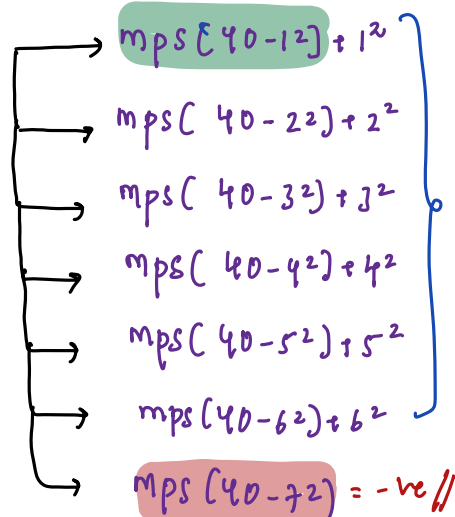 mps[40-1²]+1²
mps( 40-2²)+2²
mps( 40-3²)+3²
mps( 40-4²)+4²
mps( 40-5²)+5²
mps(40-6²)+6²
mps(40-72) = -ve //